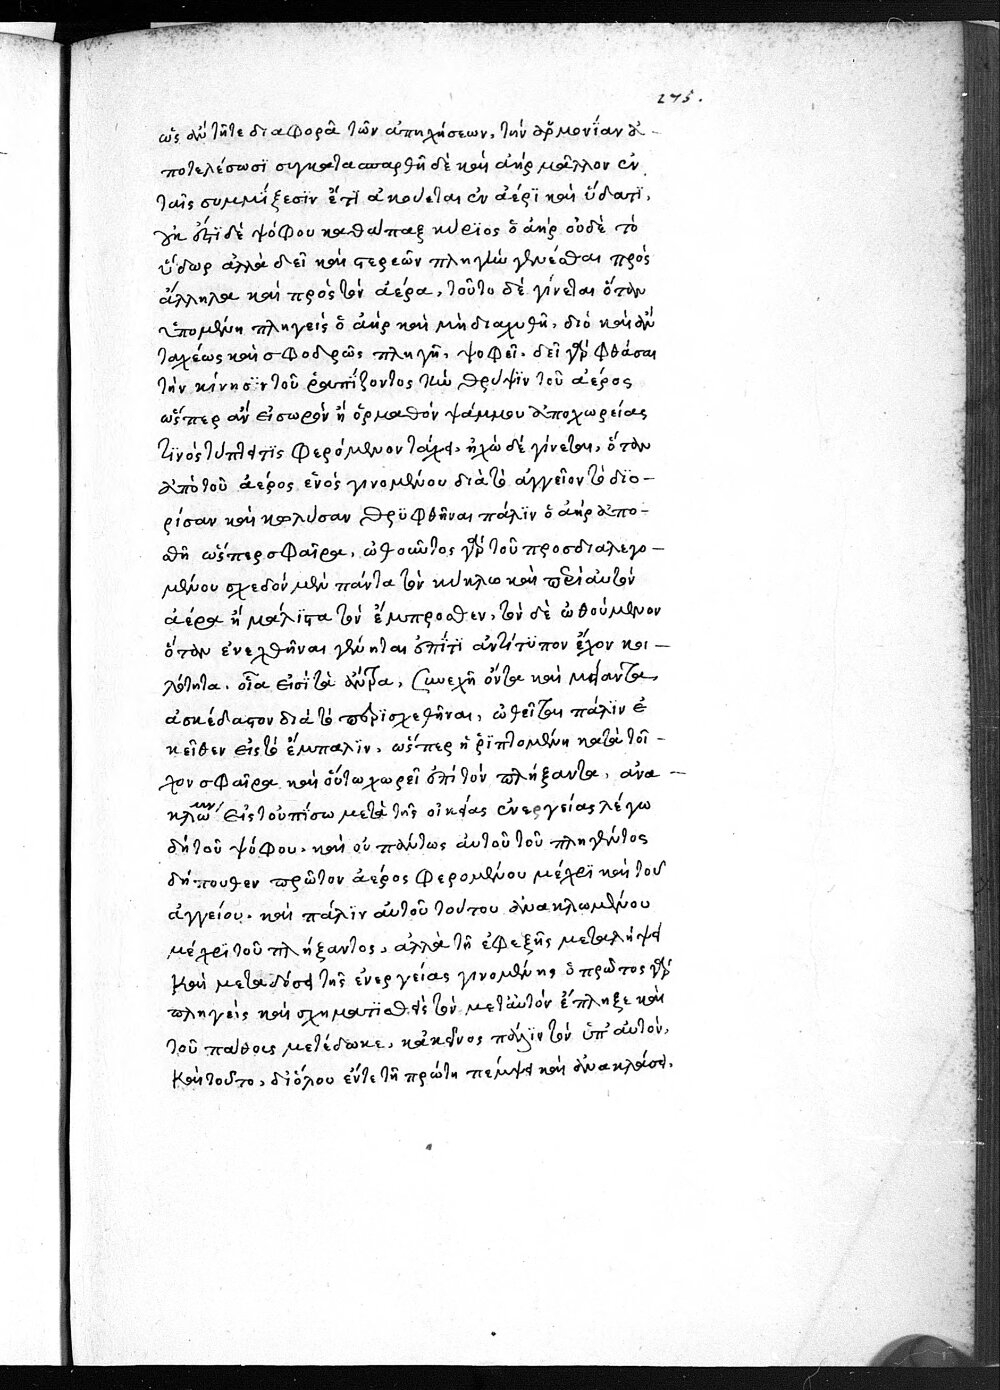 275.
ὡς ἂν τῆτε διαφορᾶ τῶν ἀπηχήσεων, τὴν ἁρμονίαν ἀ-
ποτελέσωσϊ συγκατασπαρθῆ δὲ καὶ ἀὴρ μᾶλλον ἐν
ταῖς συμμίξεσϊν ἔτϊ ἀκούεται ἐν ἀέρϊ καὶ ὕδατϊ,
οὐκ ἔστϊ δὲ ψόφου καθάπαξ κύρϊος ὁ ἀὴρ οὐδὲ τὸ
ὕδωρ ἀλλὰ δεῖ καὶ στερεῶν πληγὴν γενέσθαι πρὸς
ἄλληλα καὶ πρὸς τὸν ἀέρα, τοῦτο δὲ γίνεται ὅταν
ὑπομένη πληγεὶς ὁ ἀὴρ καὶ μὴ διαχυθῆ, διὸ καὶ ἂν
ταχέως καὶ σφοδρῶς πληγῆ, ψοφεῖ. δεῖ γὰρ φθάσαι
τὴν κίνησϊν τοῦ ῥαπίζοντος τὴν θρύψϊν τοῦ ἀέρος
ὥσπερ ἂν εἰ σωρὸν ἢ ὁρμαθὸν ψάμμου ἀποχωρείας
τϊνὸς τύπτει τϊς φερόμενον ταχὺ, ἠχὼ δὲ γίνεται, ὅταν
ἀπὸ τοῦ ἀέρος ἑνὸς γινομένου διὰ τὸ ἀγγεῖον τὸ διο-
ρίσαν καὶ κωλύσαν θρϋφθῆναι πάλϊν ὁ ἀὴρ ἀπο-
θῆ ὥσπερ σφαῖρα, ὠθοῦντος γὰρ τοῦ προσδιαλεγο-
μένου σχεδὸν μὲν πάντα τὸν κύκλω καὶ περὶ αὐτὸν
ἀέρα ἢ μάλϊστα τὸν ἔμπροσθεν, τὸν δὲ ὠθούμενον
ὅταν ἐνεχθῆναι γένηται ἐπίτϊ ἀντίτϋπον ἔχον κοι-
λότητα. οἷα εἰσὶ τὰ ἄντρα, συνεχῆ ὄντα καὶ μείναντα
ἀσκέδαστον διὰ τὸ περϊσχεθῆναι, ὠθεῖται πάλϊν ἐ
κεῖθεν εἰς τὸ ἔμπαλϊν, ὥσπερ ἡ ῥϊπτομένη κατὰ τοί-
χον σφαῖρα καὶ οὕτω χωρεῖ ἐπὶ τὸν πλήξαντα, ἀνα-
κλων εἰς τοὐπίσω μετὰ τῆς οἰκείας ἐνεργείας λέγω
δὴ τοῦ ψόφου. καὶ οὐ πάντως αὐτοῦ τοῦ πληγέντος
δήπουθεν πρῶτον ἀέρος φερομένου μέχρϊ καὶ τοῦ
ἀγγείου. καὶ πάλϊν αὐτοῦ τούτου ἀνακλωμένου
μέχρϊ τοῦ πλήξαντος, ἀλλὰ τῆ ἐφεξῆς μεταλήψει
καὶ μεταδόσει τῆς ἐνεργείας γινομένης, ὁ πρῶτος γὰρ
πληγεὶς καὶ σχηματϊσθεὶς τὸν μετ αὐτὸν ἔπληξε καὶ
τοῦ πάθους μετέδωκε, κἀκεῖνος πάλϊν τὸν ὑπ αὐτὸν,
καὶ τοῦτο, διόλου ἔντε τῆ πρώτη πέμψει καὶ ἀνακλάσει.